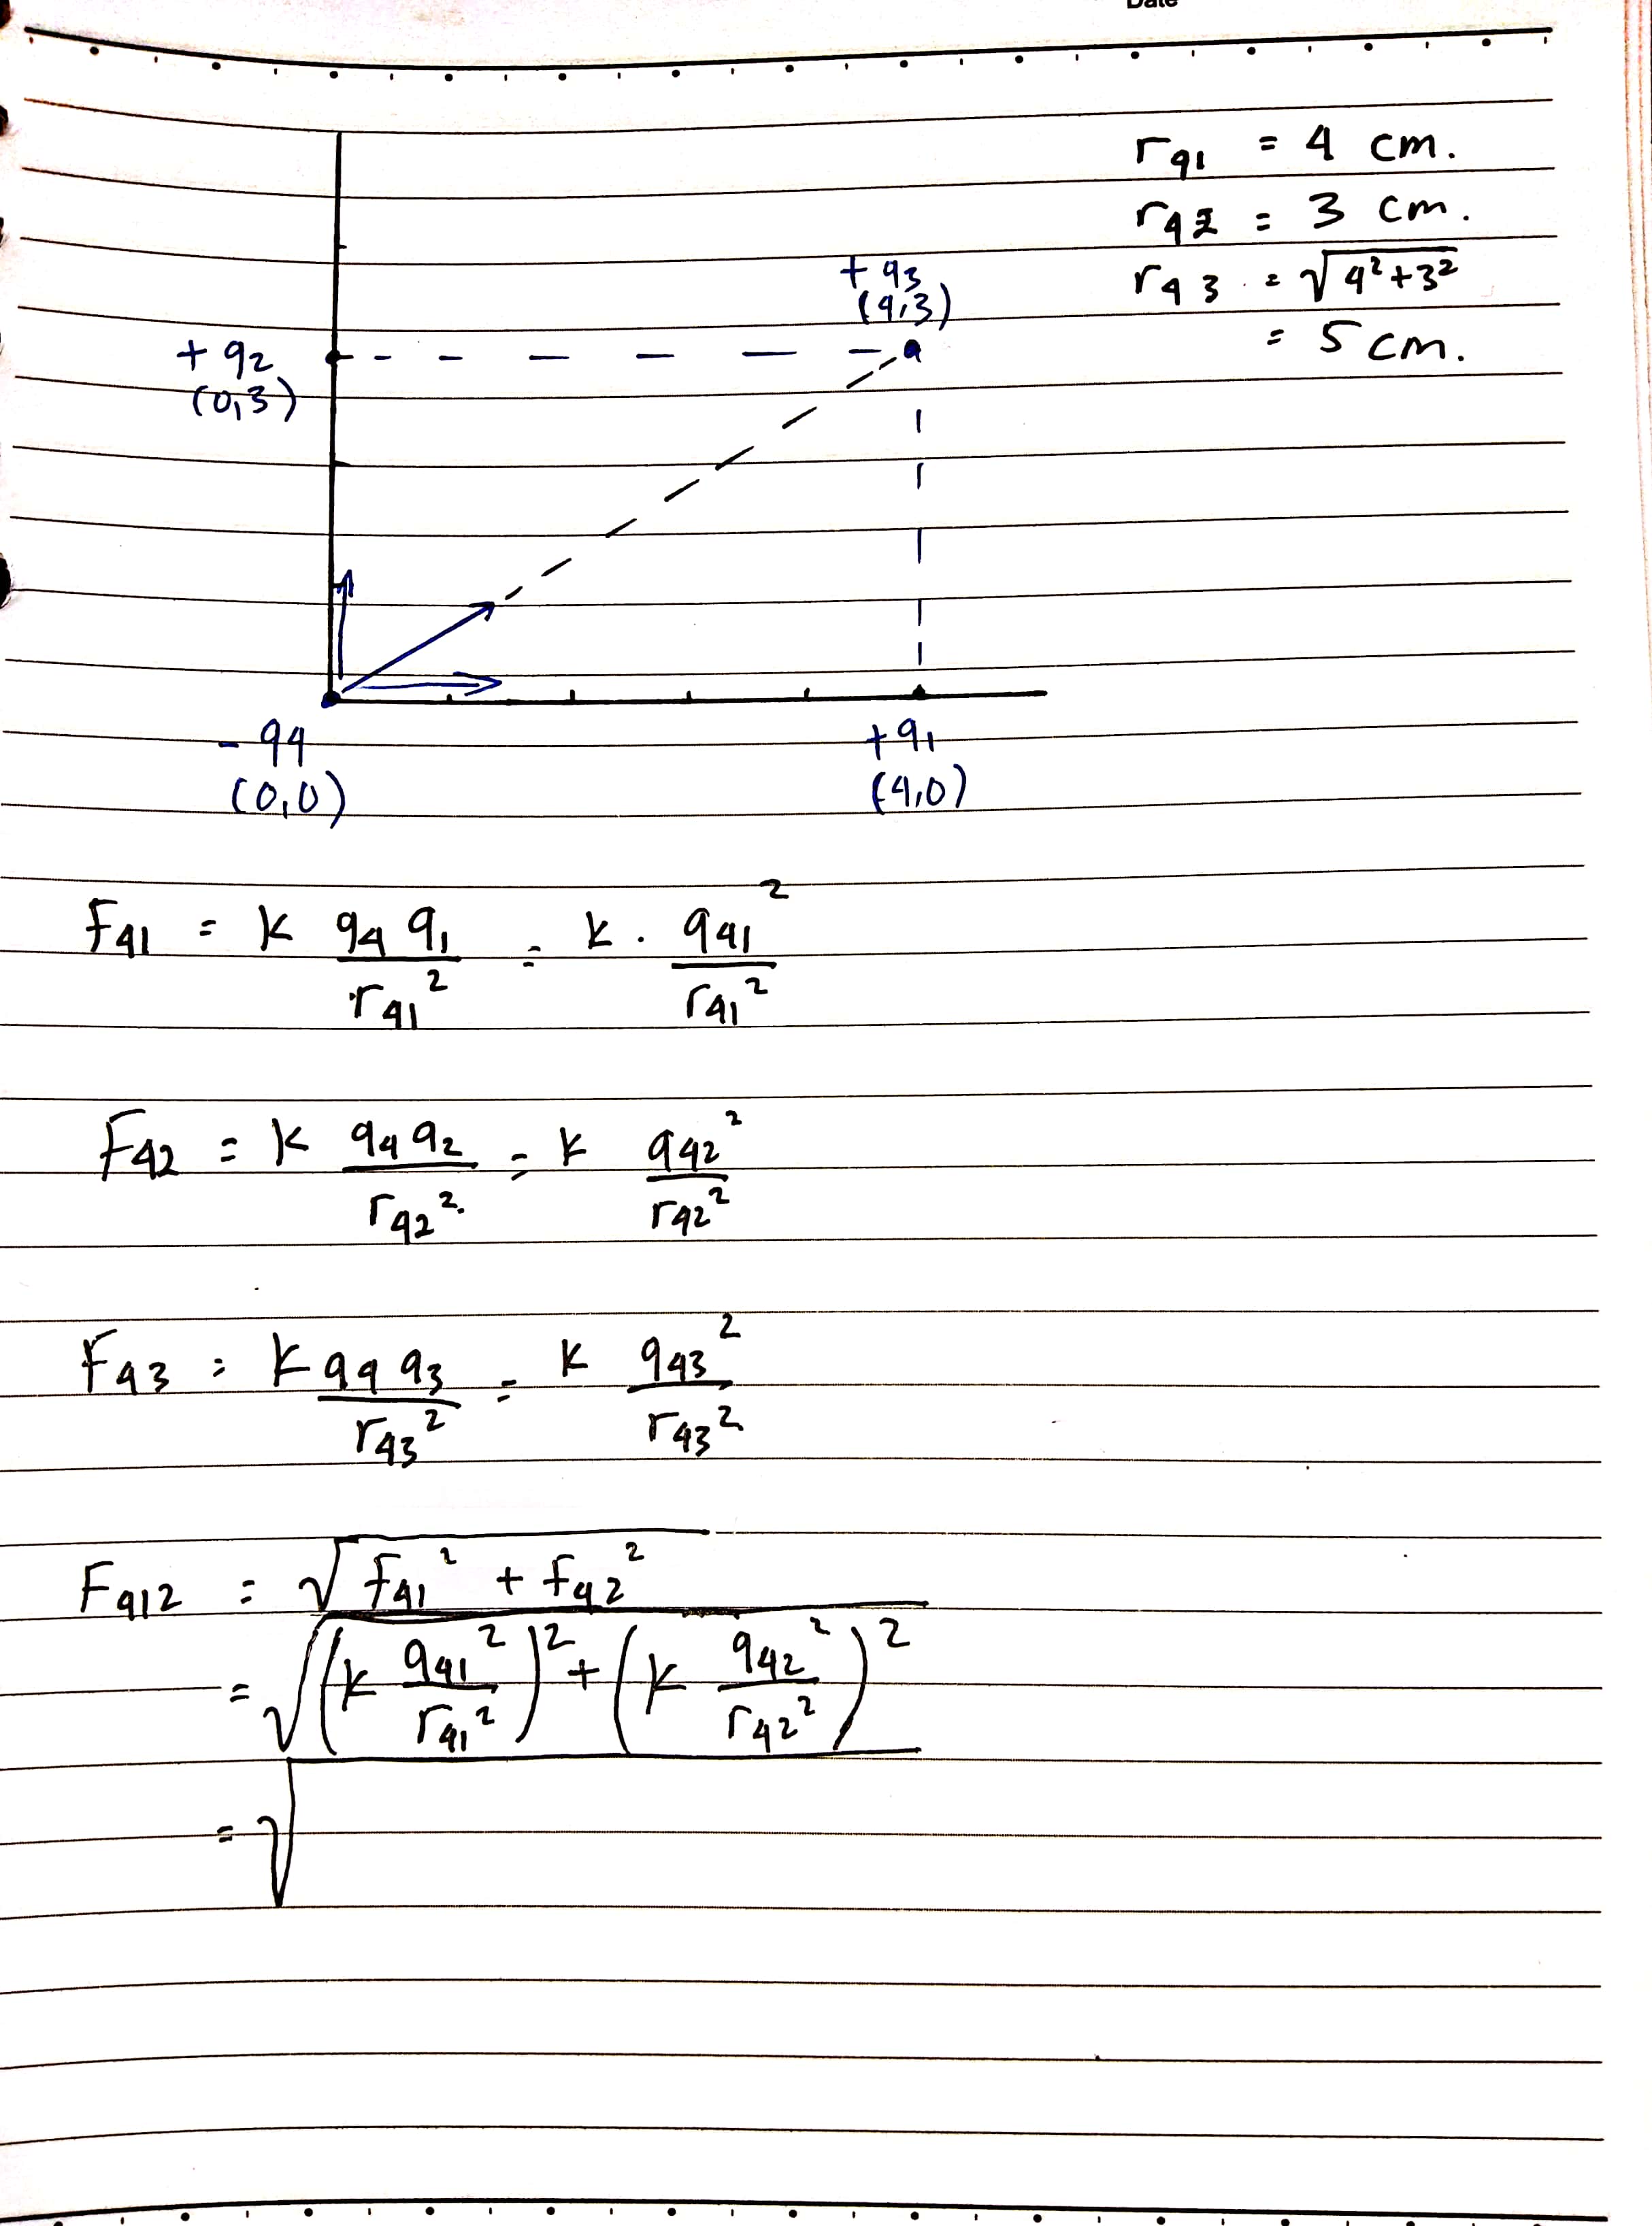 Date
r₄₁ = 4 cm.
r₄₂ = 3 cm.
r₄₃ = √(4²+3²)
= 5 cm.
+q₃
(4,3)
+q₂
(0,3)
-q4
(0,0)
+q₁
(4,0)
F₄₁ = k q₄ q₁ / r₄₁² = k . q₄₁² / r₄₁²
F₄₂ = k q₄ q₂ / r₄₂² = k q₄₂² / r₄₂²
F₄₃ = k q₄ q₃ / r₄₃² = k q₄₃² / r₄₃²
F₄₁₂ = √(F₄₁² + F₄₂²)
= √((k q₄₁² / r₄₁²)² + (k q₄₂² / r₄₂²)²)
= √